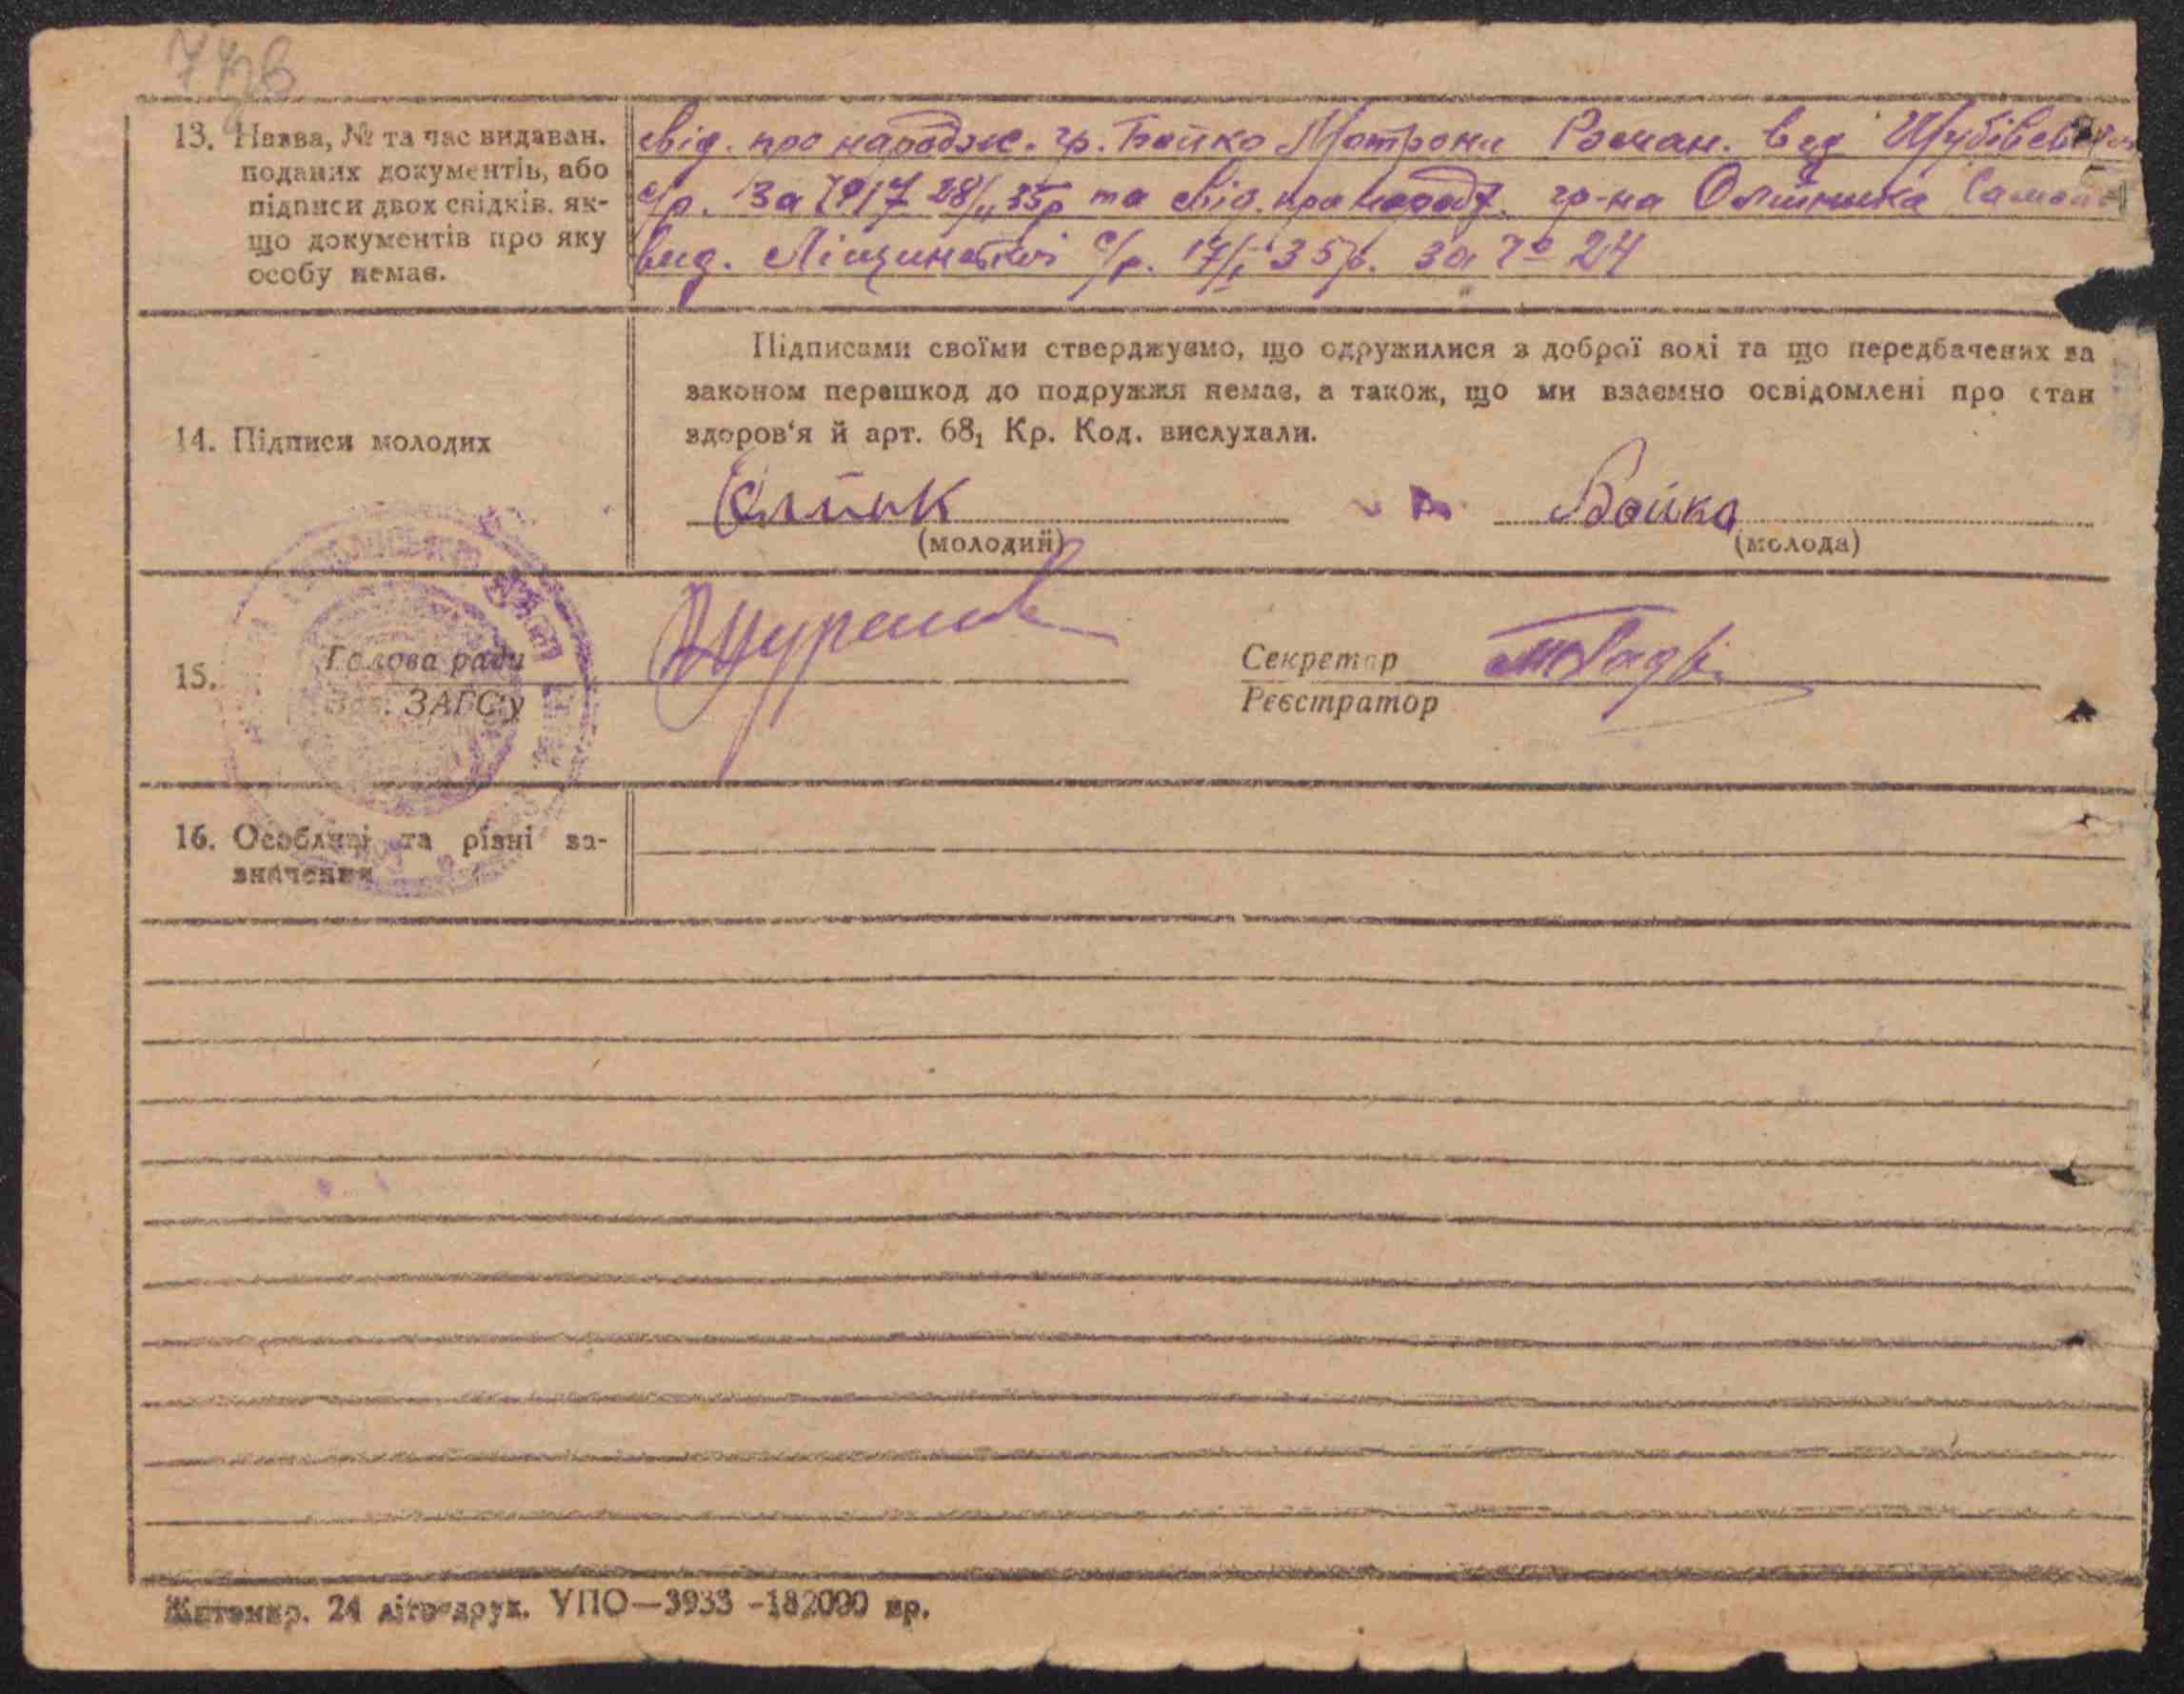 13. Назва, № та час видаван.
поданих документів, або
підписи двох свідків, як-
що документів про яку
особу немає.
свід. про народж. гр. Бойко Мотрони Роман. вид
с/р. за №17 28/II 35р та свід. про народж. гр-на Олійника
вид. с/р. 17/I 35р. за № 24
14. Підписи молодих
Підписами своїми стверджуємо, що одружилися з доброї волі та що передбачених за
законом перешкод до подружжя немає, а також, що ми взаємно освідомлені про стан
здоров'я й арт. 68₁ Кр. Код. вислухали.
Бойко
(молодий) (молода)
15. Голова ради
Зав. ЗАГС'у
Секретар
Реєстратор
16. Особливі та різні за-
значення
Житомир. 24 літо-друк. УПО—3933 -182000 пр.